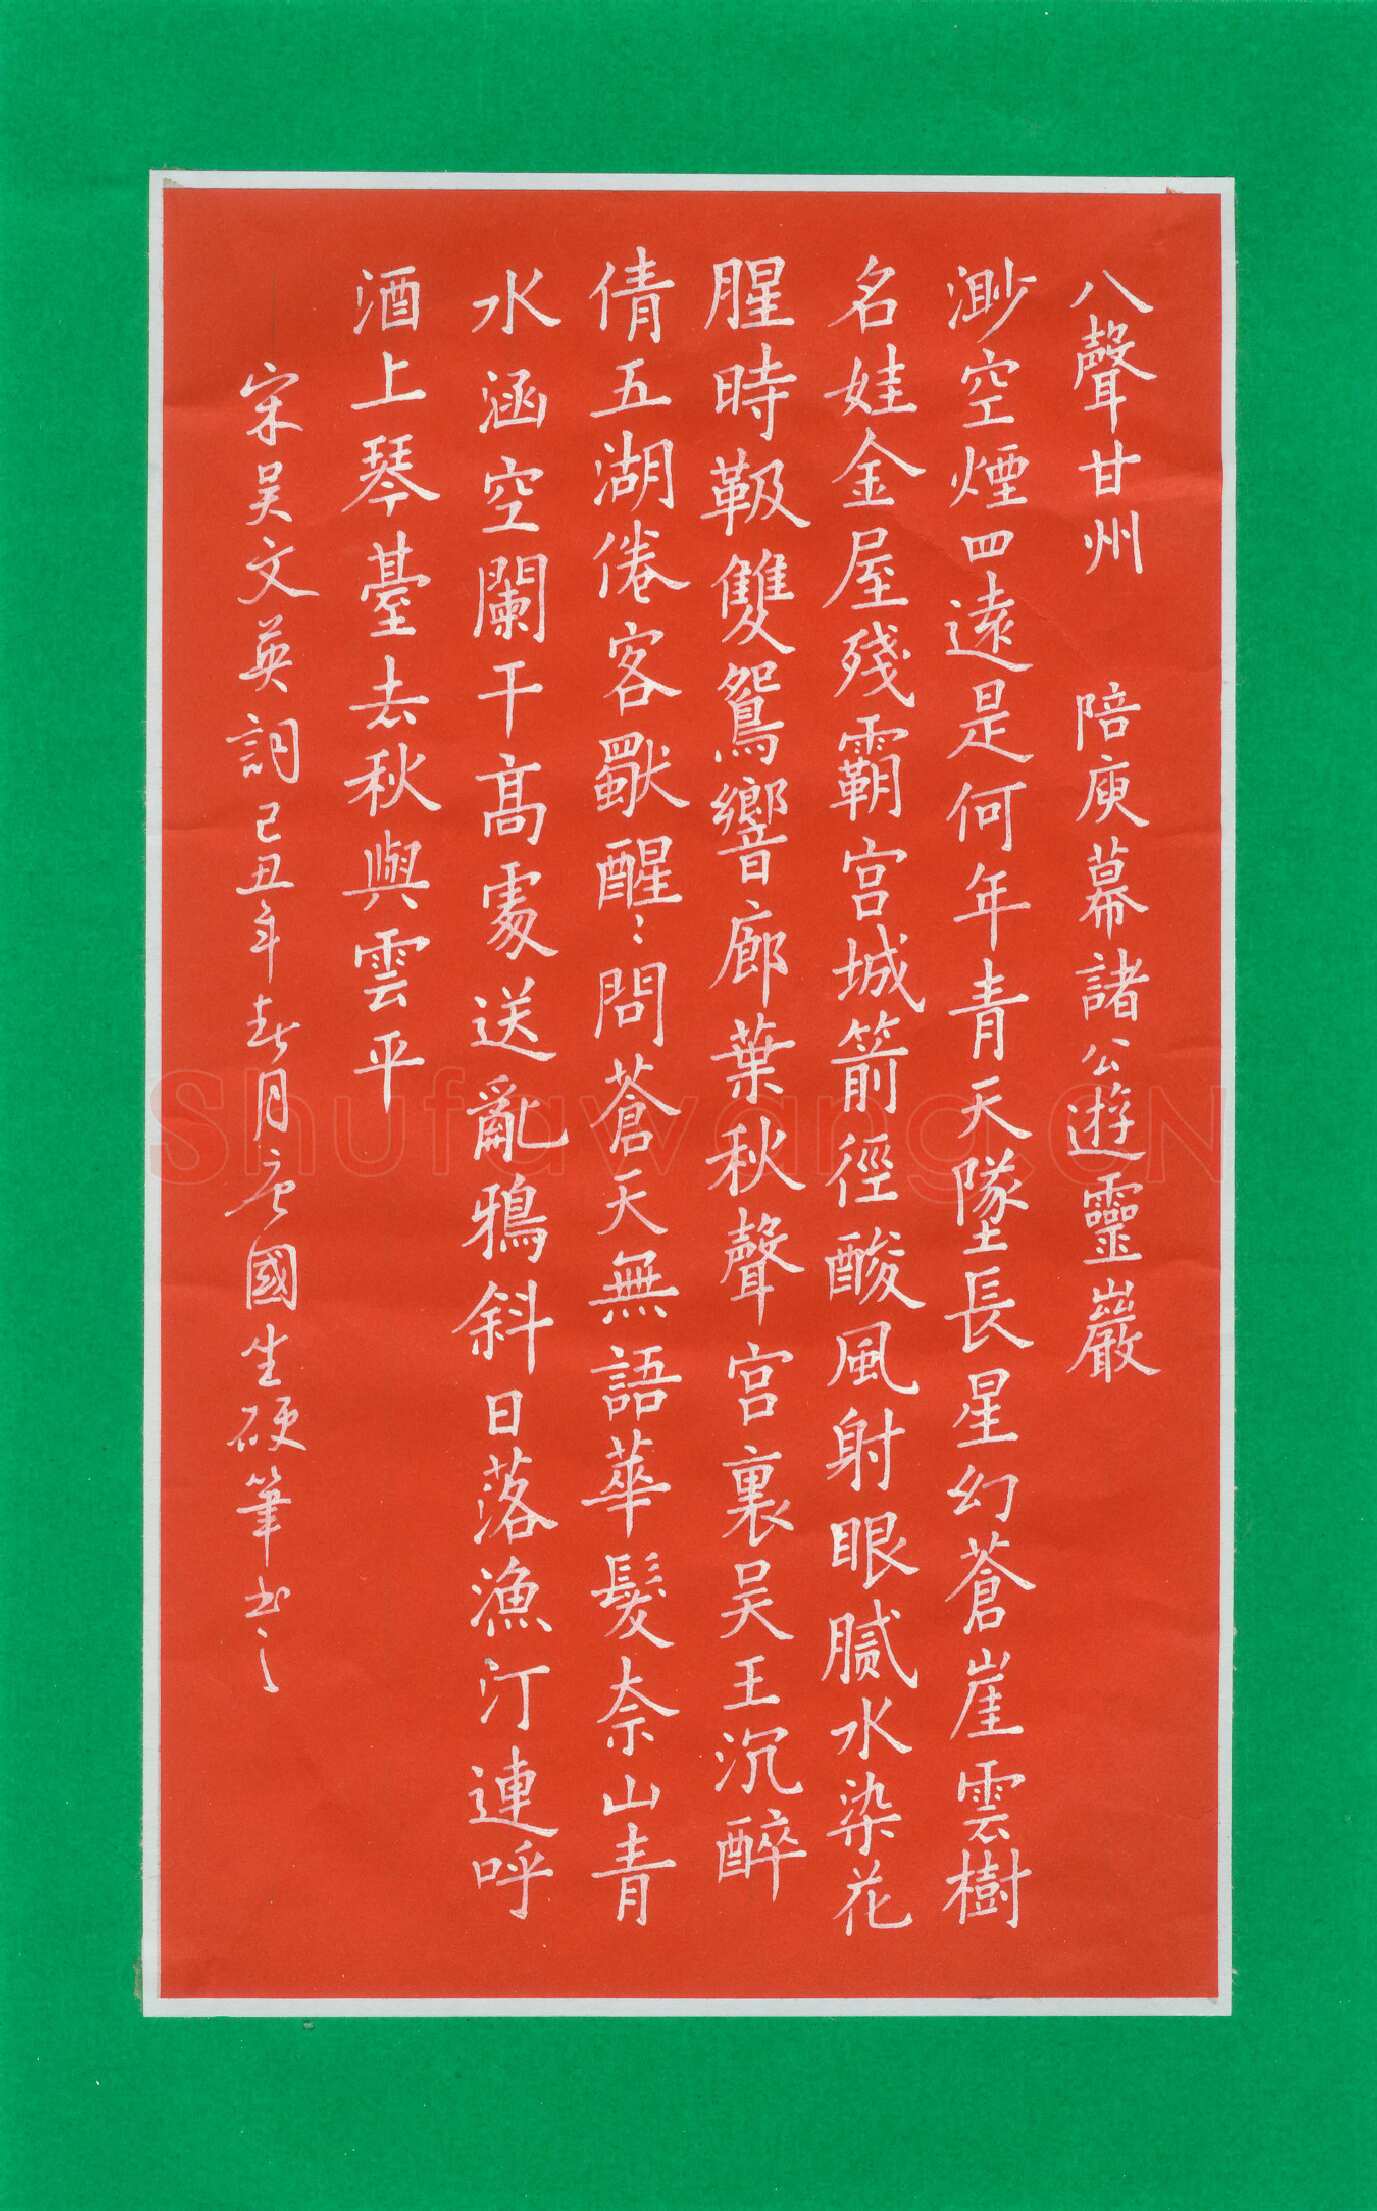 八聲甘州 陪庾幕諸公遊靈巖
渺空煙四遠是何年青天墜長星幻蒼崖雲樹
名娃金屋殘霸宮城箭徑酸風射眼膩水染花
腥時靸雙鴛響廊葉秋聲宮裏吳王沉醉
倩五湖倦客獨醒醒問蒼天無語華髮奈山青
水涵空闌干高處送亂鴉斜日落漁汀連呼
酒上琴臺去秋與雲平
宋吳文英詞己丑年春月 國生硬筆書
Shufawang.CN